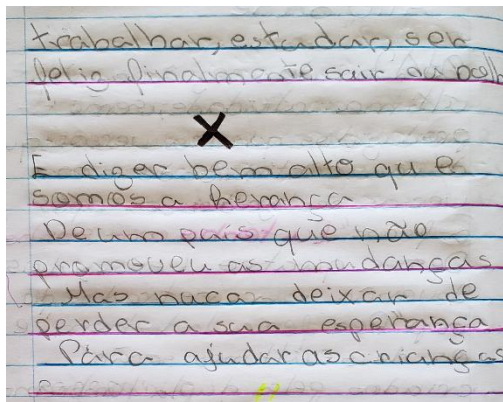 trabalhar, estudar, ser
feliz finalmente sair
E dizer bem alto que e
somos a herança
De um país que não
promoveu as mudanças
Mas nuca deixar de
perder a sua esperança
Para ajudar as crianças